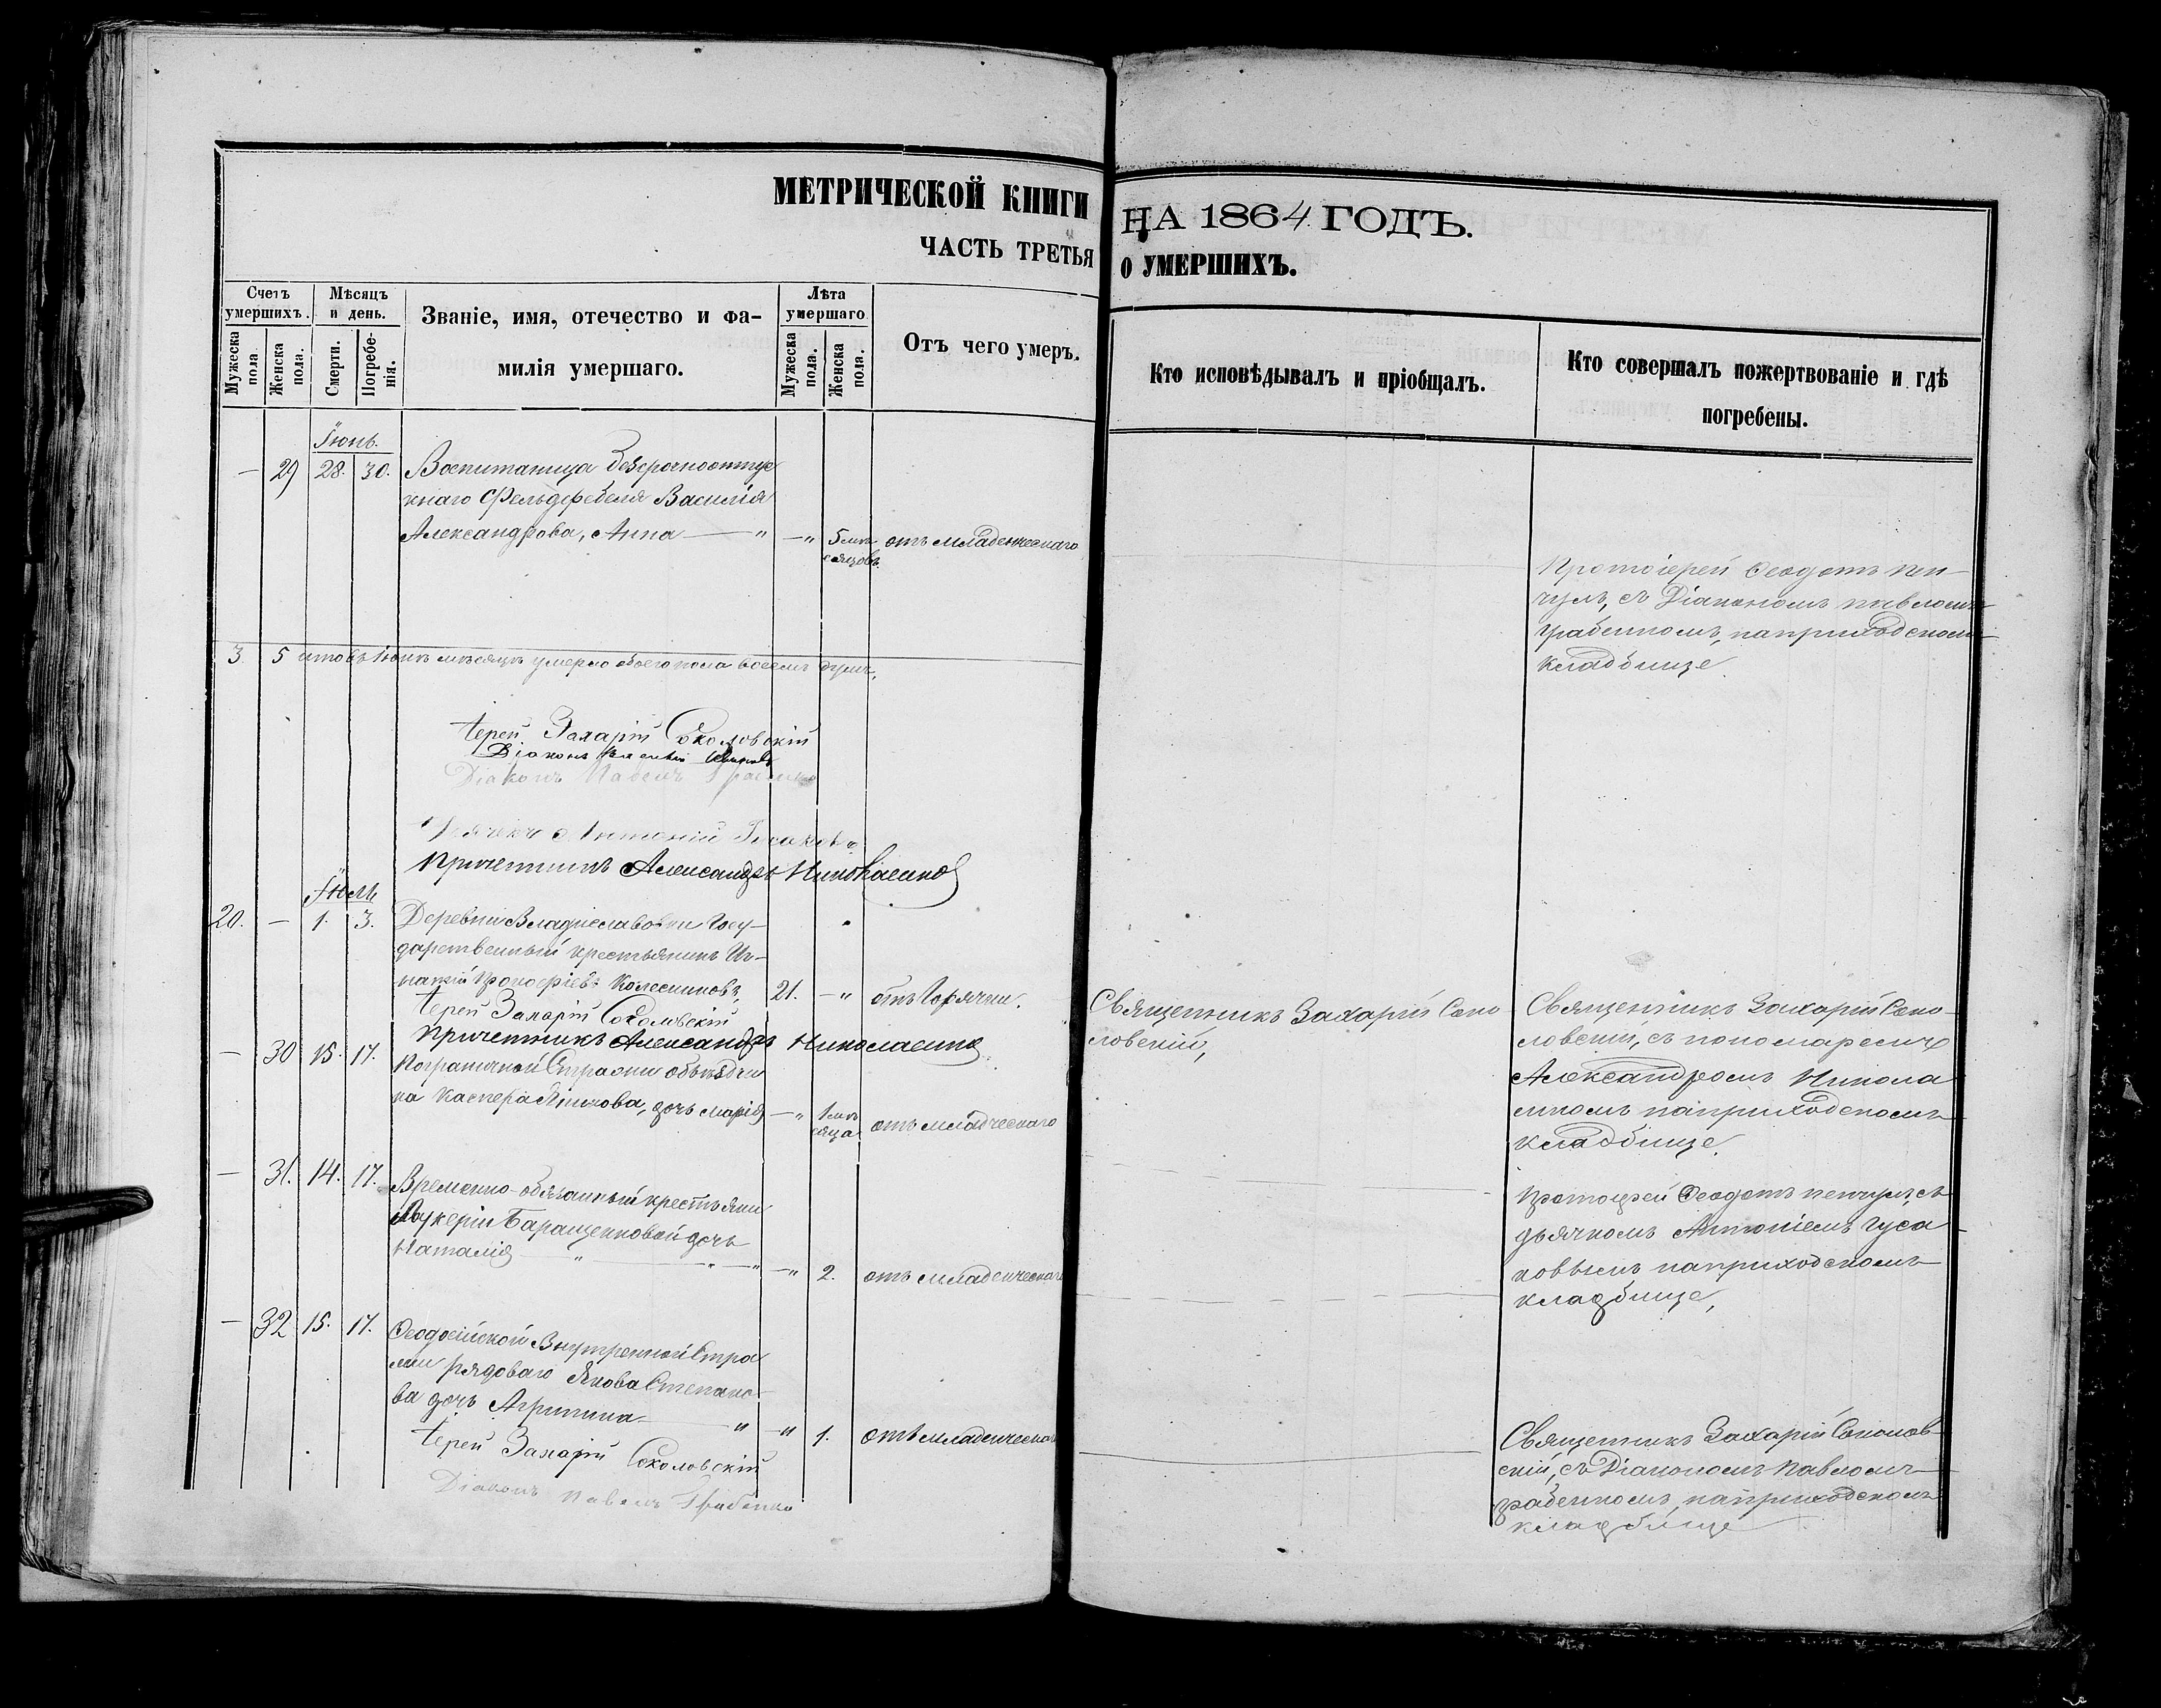 МЕТРИЧЕСКОЙ КНИГИ НА 1864 ГОДЪ.
ЧАСТЬ ТРЕТЬЯ О УМЕРШИХЪ.
Счетъ умершихъ.
Мужеска пола
Женска пола.
Мѣсяцъ и день.
Смерти.
Погребенія.
Званіе, имя, отечество и фа-
милія умершаго.
Лѣта умершаго
Мужеска пола.
Женска пола.
Отъ чего умеръ.
Кто исповѣдывалъ и пріобщалъ.
Кто совершалъ пожертвованіе и гдѣ
погребены.
Іюнь.
— 29 28. 30. Воспитаница безсрочноотпус
кнаго Фельдфебеля Василія
Александрова, Анна — " — " 5 мѣ
сяцовъ. отъ младенческаго
Протоіерей Ѳеодотъ Пен-
чулъ, съ Діакономъ Павломъ
Грабенкомъ, на приходскомъ
кладбище.
3. 5 итого въ Іюнѣ мѣсяцѣ умерло обоего пола восемь душъ.
Іерей Захарій Соколовскій
Діаконъ
Діаконъ Павелъ Грабенко
Дьячекъ Антоній Гусаковъ
Причетникъ Александръ Николаенко
Іюль
20. — 1. 3. Деревни Владиславовки Госу-
дарственный крестьянинъ Иг-
натій Прокофіевъ Колесниковъ, 21. — " отъ Горячки.
Священникъ Захарій Соко
ловскій,
Священникъ Захарій Соко-
ловскій, съ пономаремъ
Александромъ Никола
енкомъ на приходскомъ
кладбище.
Іерей Захарій Соколовскій
Причетникъ Александръ Николаенко
— 30 15. 17. Пограничной Стражи объѣздчи
ка Каспера Яникова, дочь Марія — " 1 мѣ
сяца отъ младческаго
Протоіерей Ѳеодотъ Пенчулъ, съ
дьячкомъ Антоніемъ Гуса
ковымъ на приходскомъ
кладбище,
— 31. 14. 17. Временно-обязанный крестьян
Лукеріи Баращенковой дочь
Наталія — " — " — " — " 2. отъ младенческаго
— 32 15. 17. Ѳеодосійской Внутренней Стра
жи рядоваго Якова Степано-
ва дочь Агрипина — " — " 1. отъ младенческаго
Священникъ Захарій Соколов-
скій, съ Діакономъ Павломъ
Грабенкомъ, на приходскомъ
кладбище
Іерей Захарій Соколовскій
Діаконъ Павелъ Грабенко